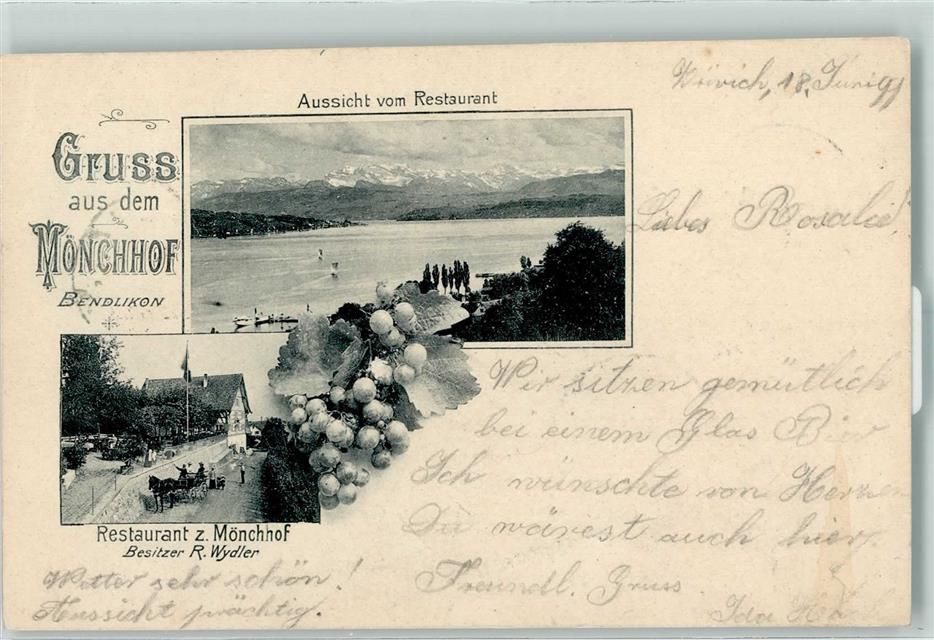 Aussicht vom Restaurant
18. Juni
Gruss
aus dem
Mönchhof
Bendlikon
Liebes Rosalie!
Wir sitzen gemütlich
bei einem Glas Bier
Ich wünschte von Herzen
Du wärest auch hier.
Freundl. Gruss
Ida
Restaurant z. Mönchhof
Besitzer R. Wydler
Wetter sehr schön!
Aussicht prächtig.